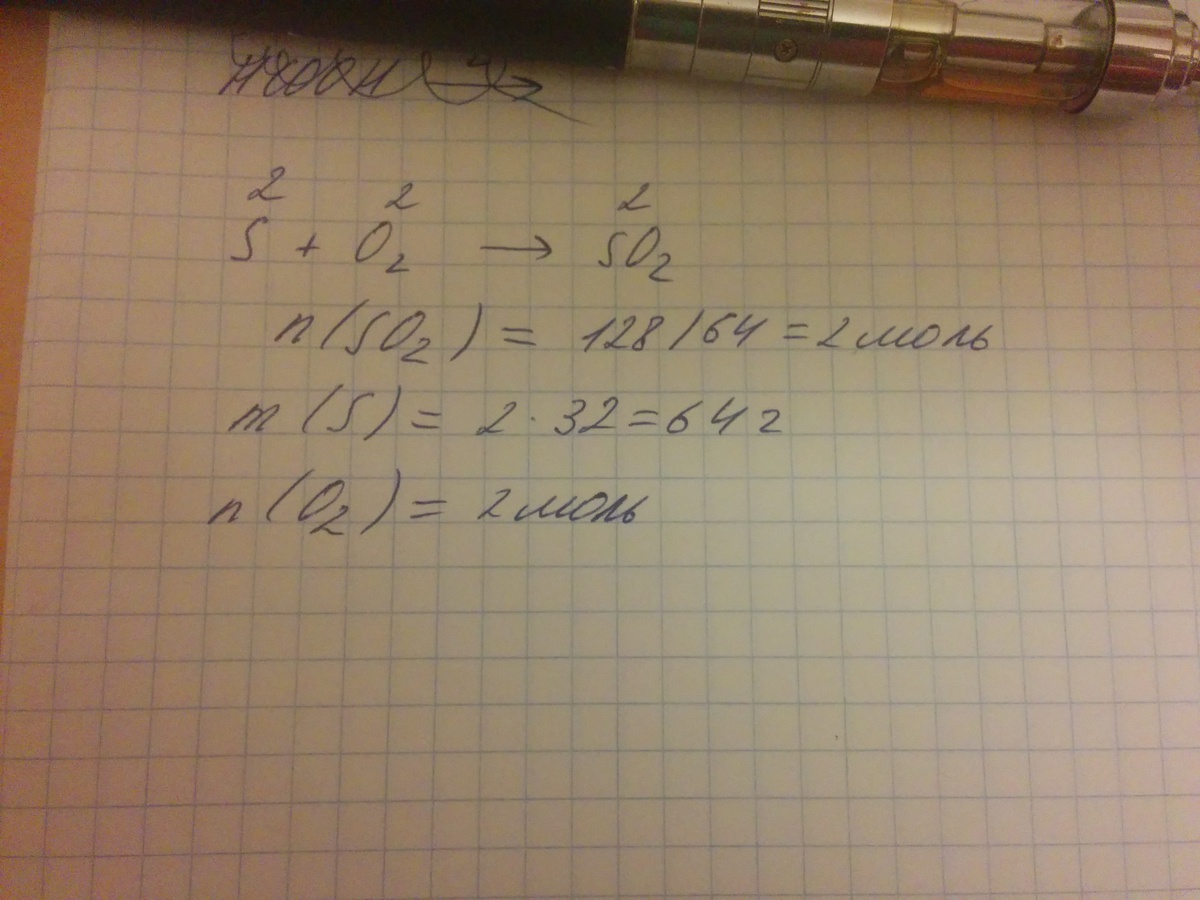 2 2 2
S + O₂ → SO₂
n(SO₂) = 128/64 = 2 моль
m(S) = 2 · 32 = 64 г
n(O₂) = 2 моль